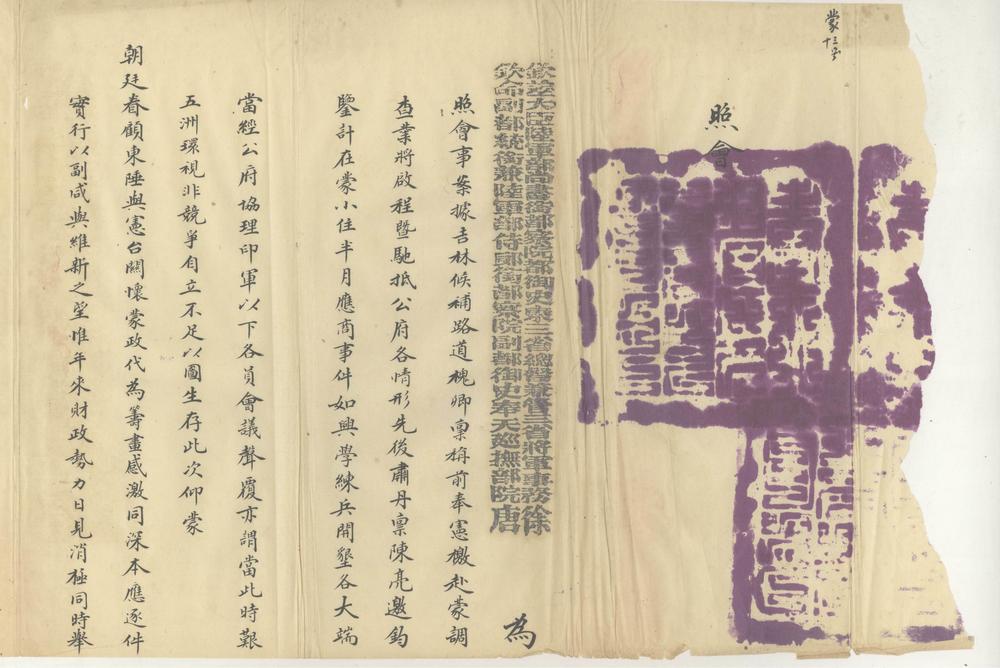 蒙十三号
照會
欽差大臣陸軍部尚書銜都察院都御史東三省總督兼管三省將軍事務徐
欽命副都統銜兼陸軍部侍郎銜都察院副都御史奉天巡撫部院唐
為
照會事案據吉林候補路道槐卿稟稱前奉憲檄赴蒙調
查業將啟程暨馳抵公府各情形先後肅丹稟陳亮邀鈞
鑒計在蒙小住半月應商事件如興學練兵開墾各大端
當經公府協理印軍以下各員會議聲覆亦謂當此時艱
五洲環視非競爭自立不足以圖生存此次仰蒙
朝廷眷顧東陲與憲台關懷蒙政代為籌畫感激同深本應逐件
實行以副咸與維新之望惟年來財政勢力日見消極同時舉